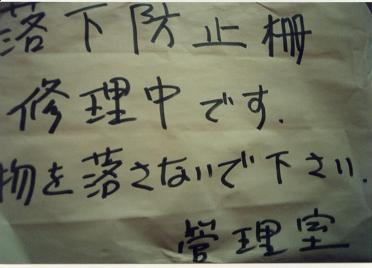 落下防止柵
修理中です.
物を落さないで下さい.
管理室